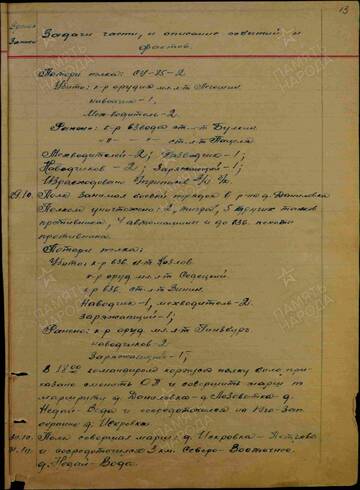 13
Время
Занят.
Задачи части, и описание событий и
фактов.
Потери полка: СУ-85-2
Убито: к-р орудия мл.л-т
наводчик-1,
Мех-водитель-2
Ранено: к-р взвода ст.л-т Булкин
-"- -"- ст.л-т
Мехводителей-2; Наводчик-1;
Наводчиков-2; Заряжающий-1;
Израсходовано
29.10. Полк занимал боевой порядок в р-не д. Даниловка
Полком уничтожено: 2 тигра, 5 других танков
противника, 4 автомашины и до взв. пехоты
противника.
Потери полка:
Убито: к-р взв. л-т Козлов
к-р оруд мл.л-т
к-р взв. ст.л-т Зинин
Наводчик-1, мехводитель-2
заряжающий-1;
Ранено: к-р оруд. мл.л-т Гинзбург
наводчиков-2
Заряжающий-1;
В 18.00 командиром корпуса полку было при-
казано сменить ОП и совершить марш по
маршруту д. Даниловка - д. Лозоватка д.
Недай-Вода и сосредоточился на юго-зап.
окраине д. Искровка
30.10. Полк совершал марш: д. Искровка - Петрово
31.10. и сосредоточился 3 км. Северо-Восточнее
д. Недай-Вода.
ПАМЯТЬ НАРОДА